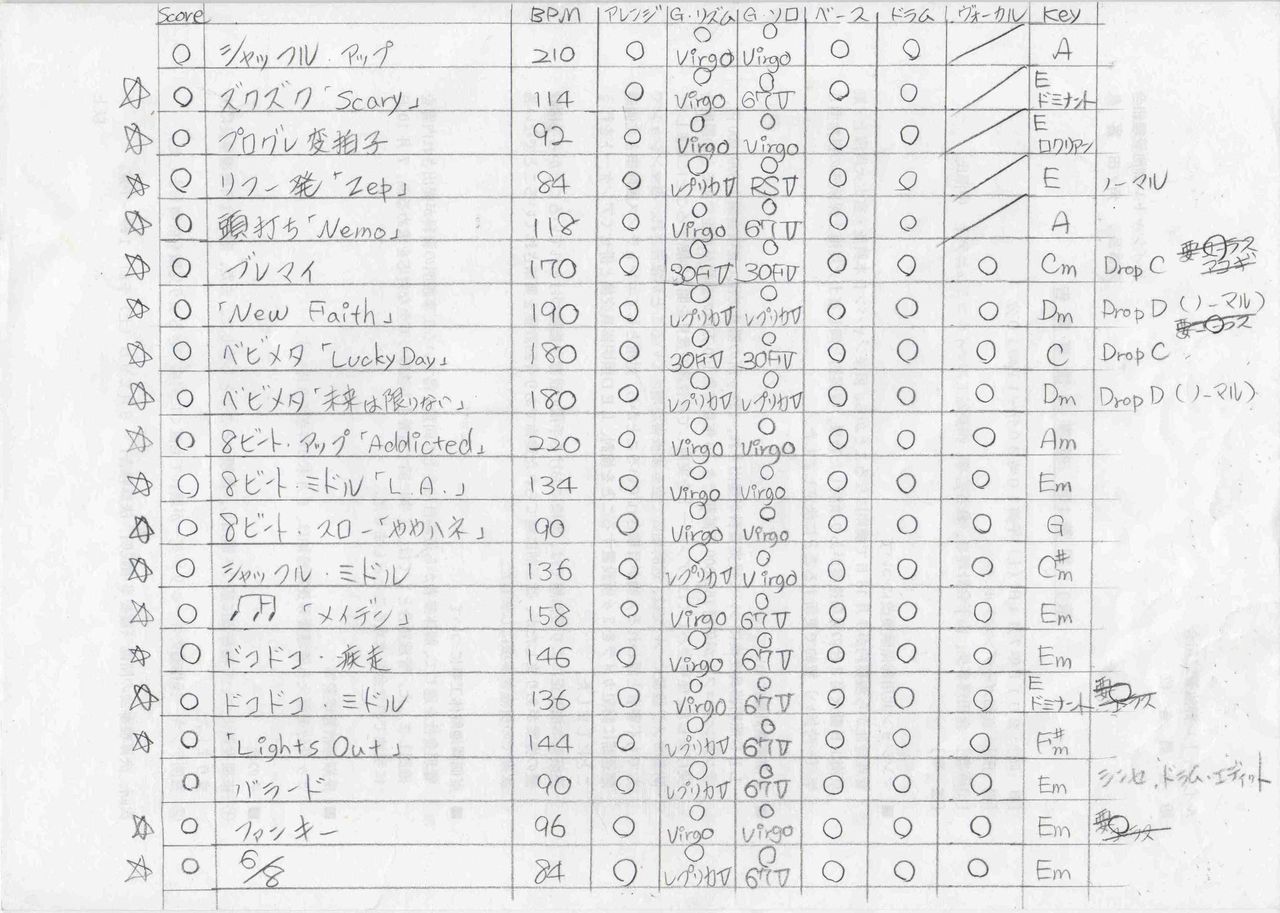 Score BPM アレンジ G・リズム G・ソロ ベース ドラム ヴォーカル Key
○ シャッフル・アップ 210 ○ ○Virgo ○Virgo ○ ○ ／ A
☆ ○ ズクズク「Scary」 114 ○ ○Virgo ○67V ○ ○ ／ E ドミナント
☆ ○ プログレ変拍子 92 ○ ○Virgo ○Virgo ○ ○ ／ E ロクリアン
☆ ○ リフ一発「Zep」 84 ○ ○レプリカV ○RSV ○ ○ ／ E ノーマル
☆ ○ 頭打ち「Nemo」 118 ○ ○Virgo ○67V ○ ○ ／ A
☆ ○ ブレマイ 170 ○ ○30FV ○30FV ○ ○ ○ Cm Drop C
☆ ○ 「New Faith」 190 ○ ○レプリカV ○レプリカV ○ ○ ○ Dm Drop D (ノーマル)
☆ ○ ベビメタ「Lucky Day」 180 ○ ○30FV ○30FV ○ ○ ○ C Drop C
☆ ○ ベビメタ「未来は限りない」 180 ○ ○レプリカV ○レプリカV ○ ○ ○ Dm Drop D (ノーマル)
☆ ○ 8ビート・アップ「Addicted」 220 ○ ○Virgo ○Virgo ○ ○ ○ Am
☆ ○ 8ビート・ミドル「L.A.」 134 ○ ○Virgo ○Virgo ○ ○ ○ Em
☆ ○ 8ビート・スロー「ややハネ」 90 ○ ○Virgo ○Virgo ○ ○ ○ G
☆ ○ シャッフル・ミドル 136 ○ ○レプリカV ○Virgo ○ ○ ○ C#m
☆ ○ 「メイデン」 158 ○ ○Virgo ○67V ○ ○ ○ Em
☆ ○ ドコドコ・疾走 146 ○ ○Virgo ○67V ○ ○ ○ Em
☆ ○ ドコドコ・ミドル 136 ○ ○Virgo ○67V ○ ○ ○ E ドミナント
☆ ○ 「Lights Out」 144 ○ ○レプリカV ○67V ○ ○ ○ F#m
○ バラード 90 ○ ○レプリカV ○67V ○ ○ ○ Em シンセ、ドラム・エディット
☆ ○ ファンキー 96 ○ ○Virgo ○Virgo ○ ○ ○ Em
☆ ○ 6/8 84 ○ ○レプリカV ○67V ○ ○ ○ Em